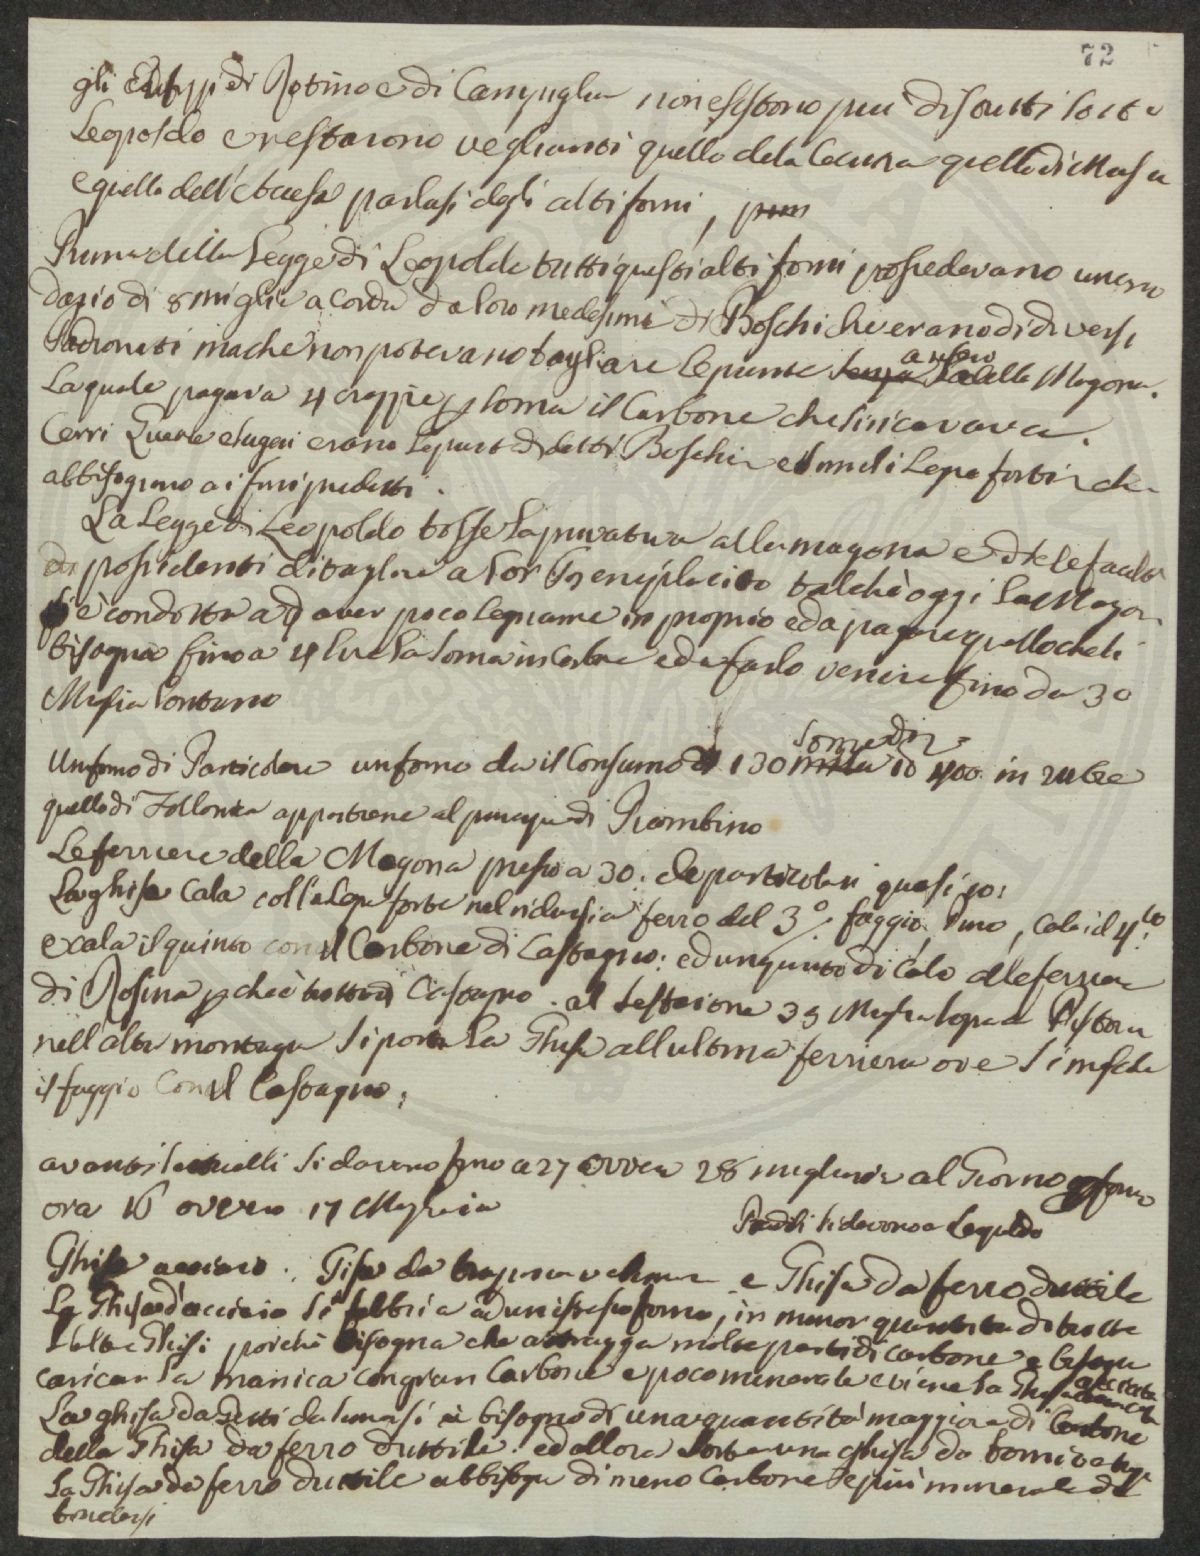 72
gli di e di Campiglia non esistono piu distrutti sotto
Leopoldo e restarono veglianti quello dela Cecina quello di Massa
e quello dell'Accesa parlasi degli alti forni,
Prima della Legge di Leopoldo tutti questi alti forni possedevano una
dazio di 8 miglia a corda da loro medesimi di Boschi che erano di diversi
Padronati ma che non potevano tagliare le piante senza della Magona.
La quale pagava 4 crazzie p soma il Carbone che si ricavava.
Cerri Querce e Sugari erano le piante di detti Boschi e simili Legni forti che
abbisognano ai forni predetti.
La Legge di Leopoldo tolse la privativa alla magona e diede facoltà
ai possidenti di tagliare a lor Benepla cito talchè oggi la Magona
si è condotta ad aver poco legname in proprio ed a pagare quello che li
bisogna fino a 4 lire la soma in carbone ed a farlo venire fino da 30
Miglia lontano
some di
Un forno di Particolare un forno da il Consumo di 130 a 400 in 24 bre
quello di Follonica appartiene al principe di Piombino
Le ferriere della Magona presso a 30. de particolari quasi 30:
La ghisa cala coll'Legna forte nel ridursi a ferro del 3º. faggio, Pino, cala il 4.to
e cala il quinto con il Carbone di Castagno: ed un quinto di Calo alle ferriere
di Rosina p chè è tutto di Castagno. al Sestaione 35 Miglia sopra Pistoia
nell'alta montagna si porta la Ghisa all ultima ferriera ove si mischia
il faggio con il Castagno;
avanti i si davano fino a 27 ovvero 28 migliaia al Giorno p forno
ora 16 ovvero 17 Migliaia
si davano a Leopoldo
Ghisa acciaio. Gisa da e Ghisa da ferro duttile
La Ghisa d'acciaio si fabbrica ad un istesso forno, in minor quantita di tutte
l'altre Ghisi poichè bisogna che attragga molte parti di carbone e bisogna
caricar la manica con gran Carbone e poco minerale e viene la Ghisa acciaiata
La ghisa da Getti da lunasi è bisogno di una quantità maggiore di Carbone
della Ghisa da ferro duttile. ed allora sorte una ghisa da
La Ghisa da ferro duttile abbisogna di meno Carbone e piu minerale da
fondersi